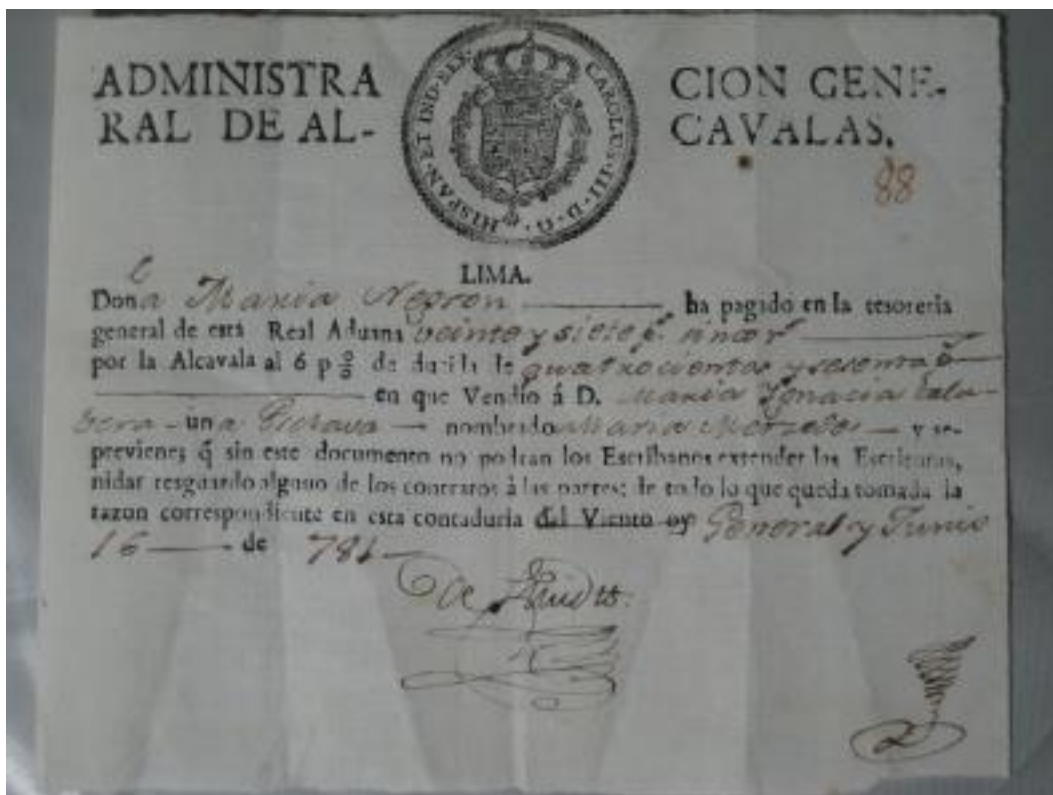 ADMINISTRA CION GENE-
RAL DE AL- CAVALAS.
HISPAN·ET IND·REX· CAROLUS·III·D·G·
88
LIMA.
Dona Maria Negron ha pagado en la tesoreria
general de esta Real Aduana veinte y siete p.s cinco r.s
por la Alcavala al 6 p% de de quatrocientos y sesenta p.s
en que Vendio á D. Maria Ignacia Tala-
vera una Esclava nombrado Maria Mercedes y se
previene; q̃ sin este documento no podran los Escribanos extender las Escrituras,
nidar resguardo alguno de los contratos à las partes; de todo lo que queda tomada la
razon correspondiente en esta contaduria del Viento oy General y Junio
16 de 781
De